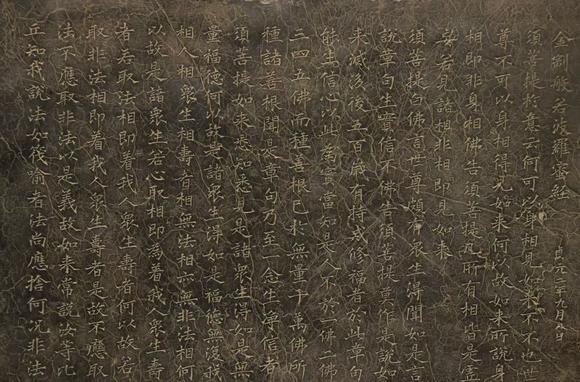 金剛般若波羅蜜經 元二年九月八日
須菩提於意云何可以身相見如來不不也世
尊不可以身相得見如來何以故如來所說身
相即非身相佛告須菩提凡所有相皆是虛
妄若見諸相非相即見如来
須菩提白佛言世尊頗有衆生得聞如是言
說章句生實信不佛告須菩提莫作是說如
来滅後後五百歲有持戒修福者於此章句
能生信心以此為實當知是人不於一佛二佛
三四五佛而種善根已於無量千萬佛所
種諸善根聞是章句乃至一念生淨信者
須菩提如来悉知悉見是諸衆生得如是無
量福德何以故是諸衆生得如是福德無復我
相人相衆生相壽者相無法相亦無非法相何
以故是諸衆生若心取相即為着我人衆生壽
者若取法相即着我人衆生壽者何以故若
取非法相即着我人衆生壽者是故不應取
法不應取非法以是義故如来常說汝等比
丘知我說法如筏喻者法尚應捨何况非法